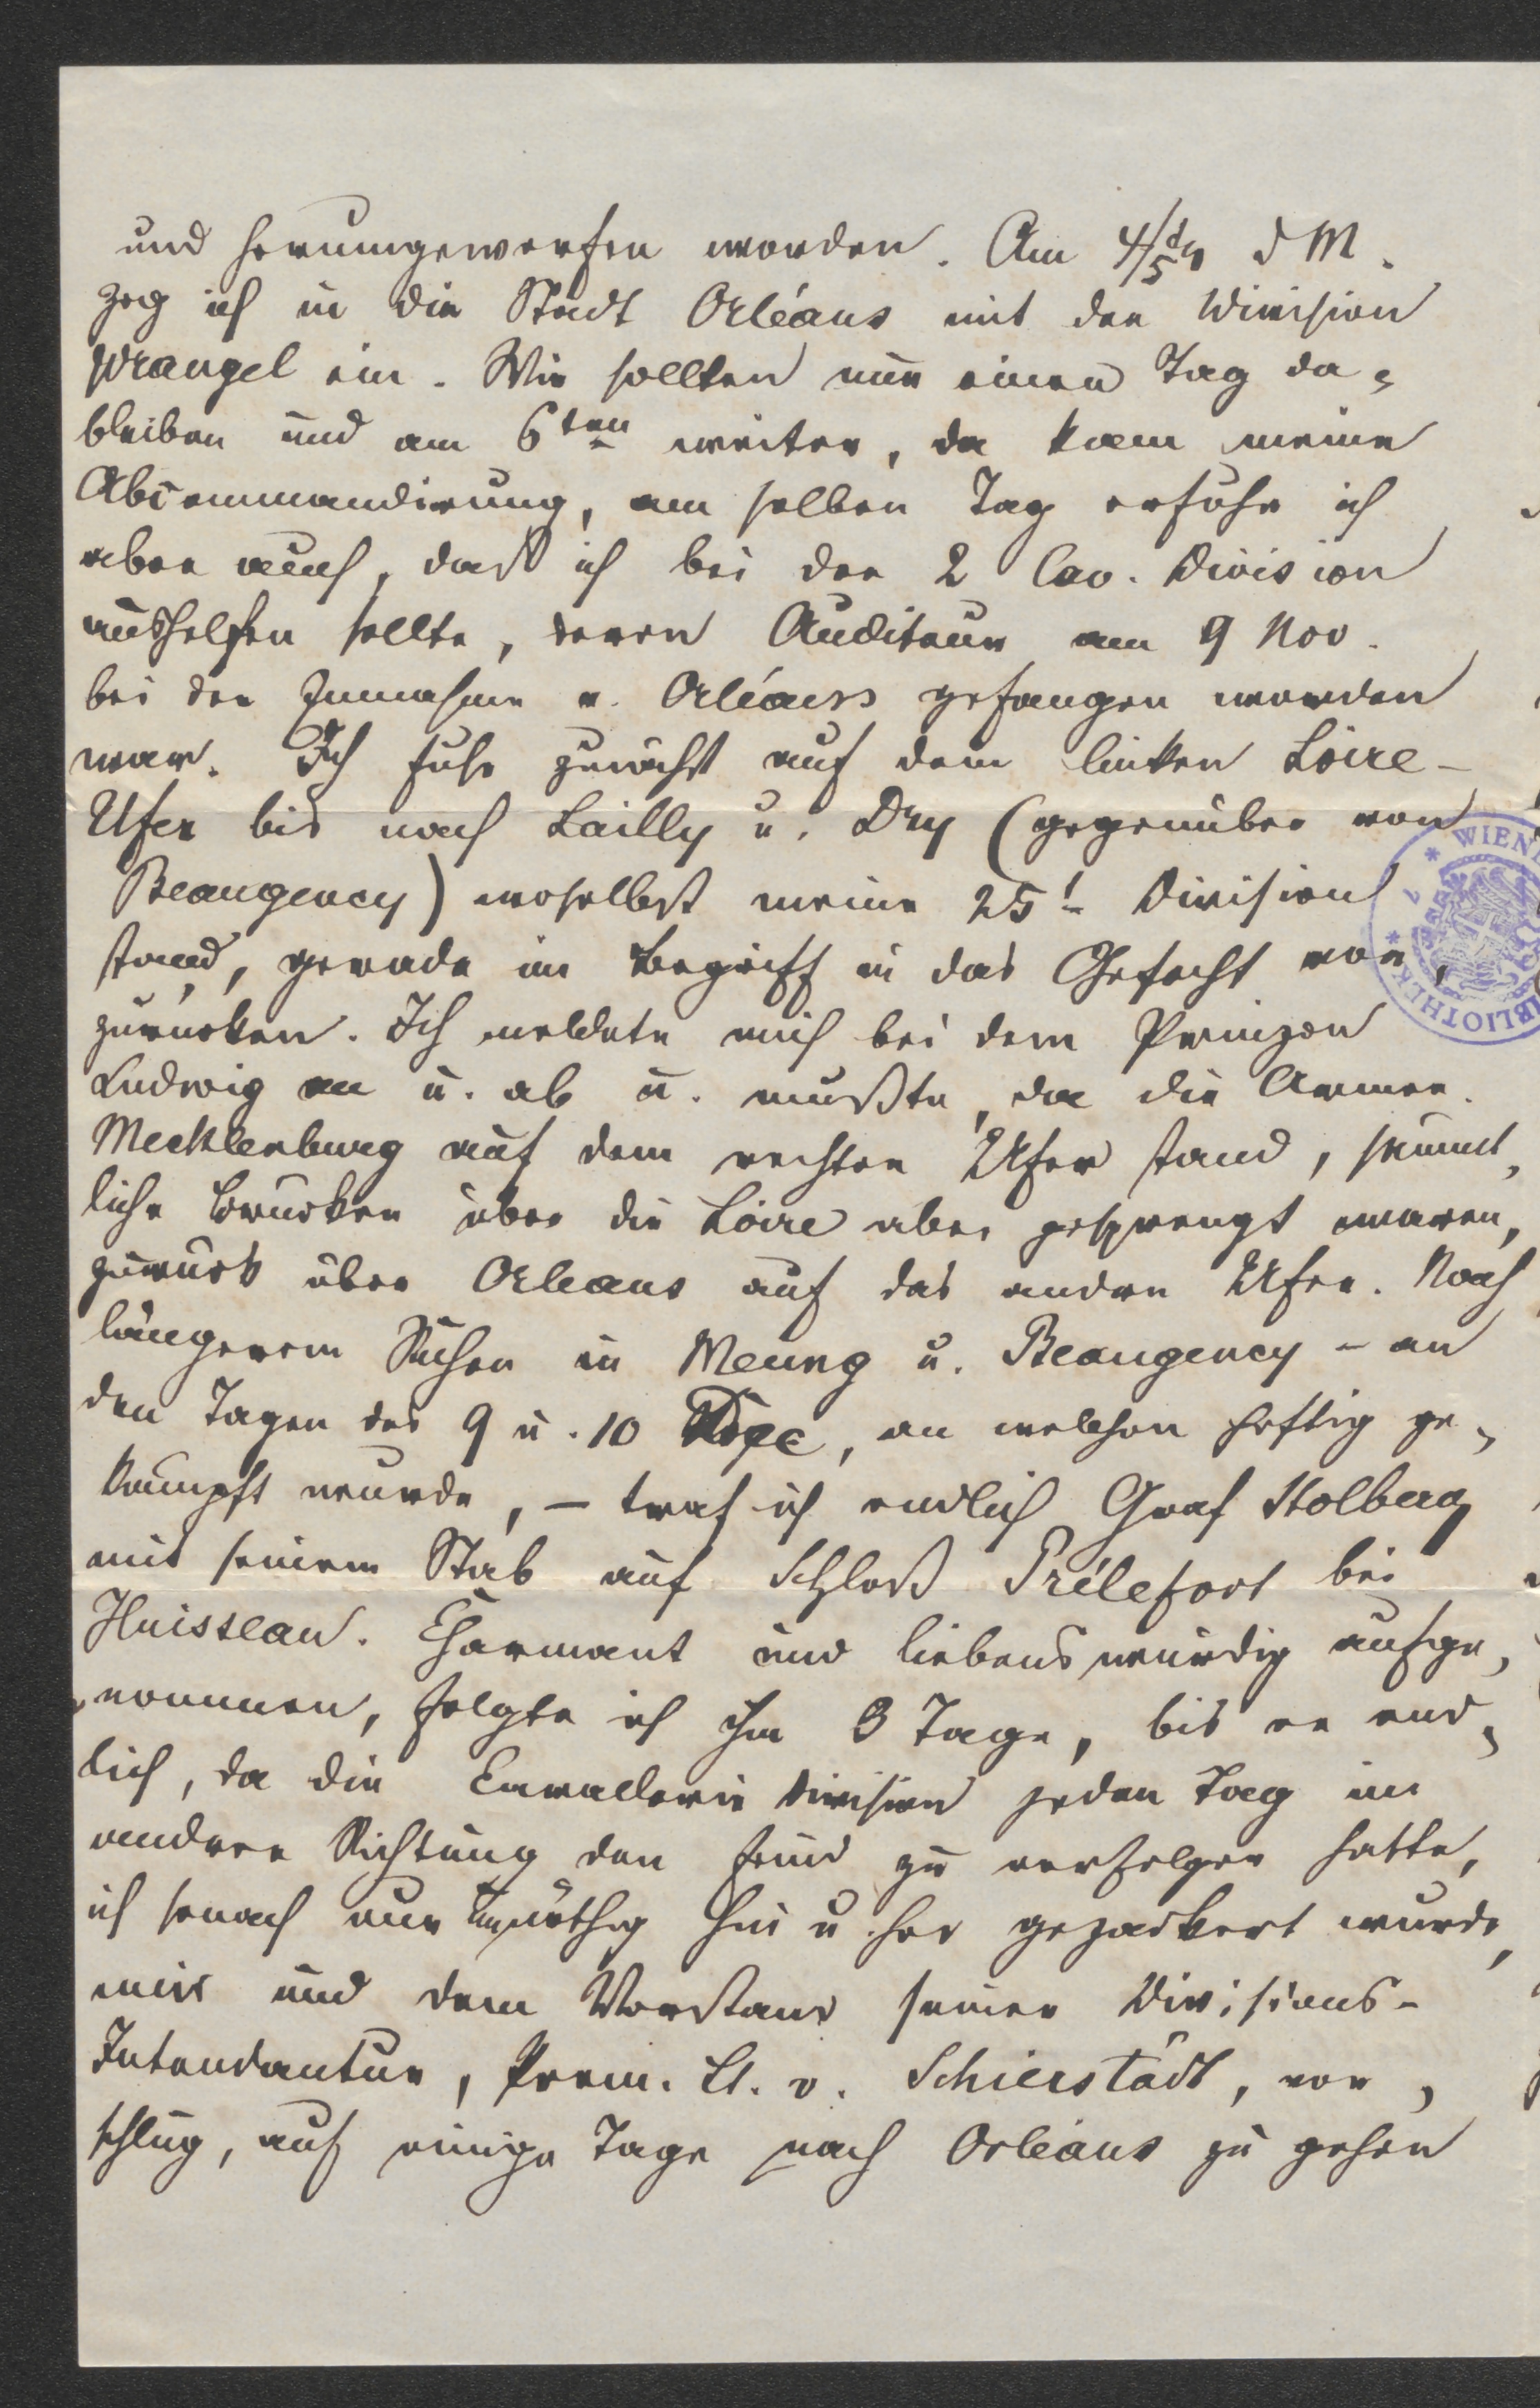 und herumgeworfen worden. Am 4/5 d M.
zog ich in die Stadt Orléans mit der Division
Wrangel ein. Wir sollten nun einen Tag da-
bleiben und am 6ten weiter, da kam meine
Abcommandirung, am selben Tag erfuhr ich
aber auch, daß ich bei der 2 Cav. Division
aushelfen sollte, deren Auditeur am 9 Nov.
bei der Innahme v. Orléans gefangen worden
war. Ich fuhr zunächst auf dem linken Loire-
Ufer bis nach Lailly u. Dry (gegenüber von
Beaugency) woselbst meine 25t Division
stand, gerade im Begriff in das Gefecht vor-
zurücken. Ich meldete mich bei dem Prinzen
Ludwig an u. ab u. mußte, da die Armee
Mecklenburg auf dem rechten Ufer stand, sämmt-
liche Brücken über die Loire aber gesprengt waren,
zurück über Orleans auf das andre Ufer. Nach
längerem Suchen in Meung u. Beaugency - an
den Tagen des 9 u. 10 Dzc, an welchen heftig ge-
kämpft wurde, - traf ich endlich Graf Stolberg
mit seinem Stab auf Schloß Prélefort bei
Huisseau. Charmant und liebenswürdig aufge-
nommen, folgte ich ihm 3 Tage, bis er end-
lich, da die Cavallerie Division jeden Tag in
andrer Richtung den Feind zu verfolgen hatte,
ich sonach nur unnöthig hin u her gezackert wurde,
mir und dem Vorstand seiner Divisions-
Intendantur, Prem. Lt. v. Schierstädt, vor-
schlug, auf einige Tage nach Orléans zu gehen